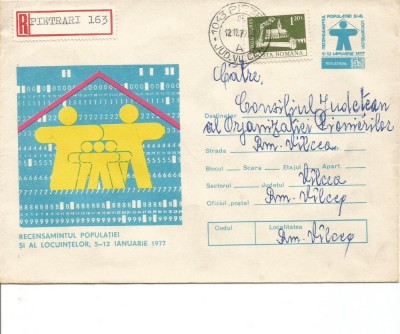 R PIETRARI 163
1043 PIE
12.12.77
A
JUD. VÎLCEA
1,20 L
POSTA ROMANA
RECENSAMINTUL POPULATIEI SI AL
5-12 IANUARIE 1977
Către,
Consiliul Judetean
Destinatar
al Organizației Pionierilor
Strada Rm. Vîlcea
Blocul Scara Etajul Apart.
Sectorul Judetul Vîlcea
Oficiul poștal Rm. Vîlcea
Codul Localitatea
Rm. Vîlcea
RECENSAMINTUL POPULATIEI
SI AL LOCUINTELOR, 5-12 IANUARIE 1977